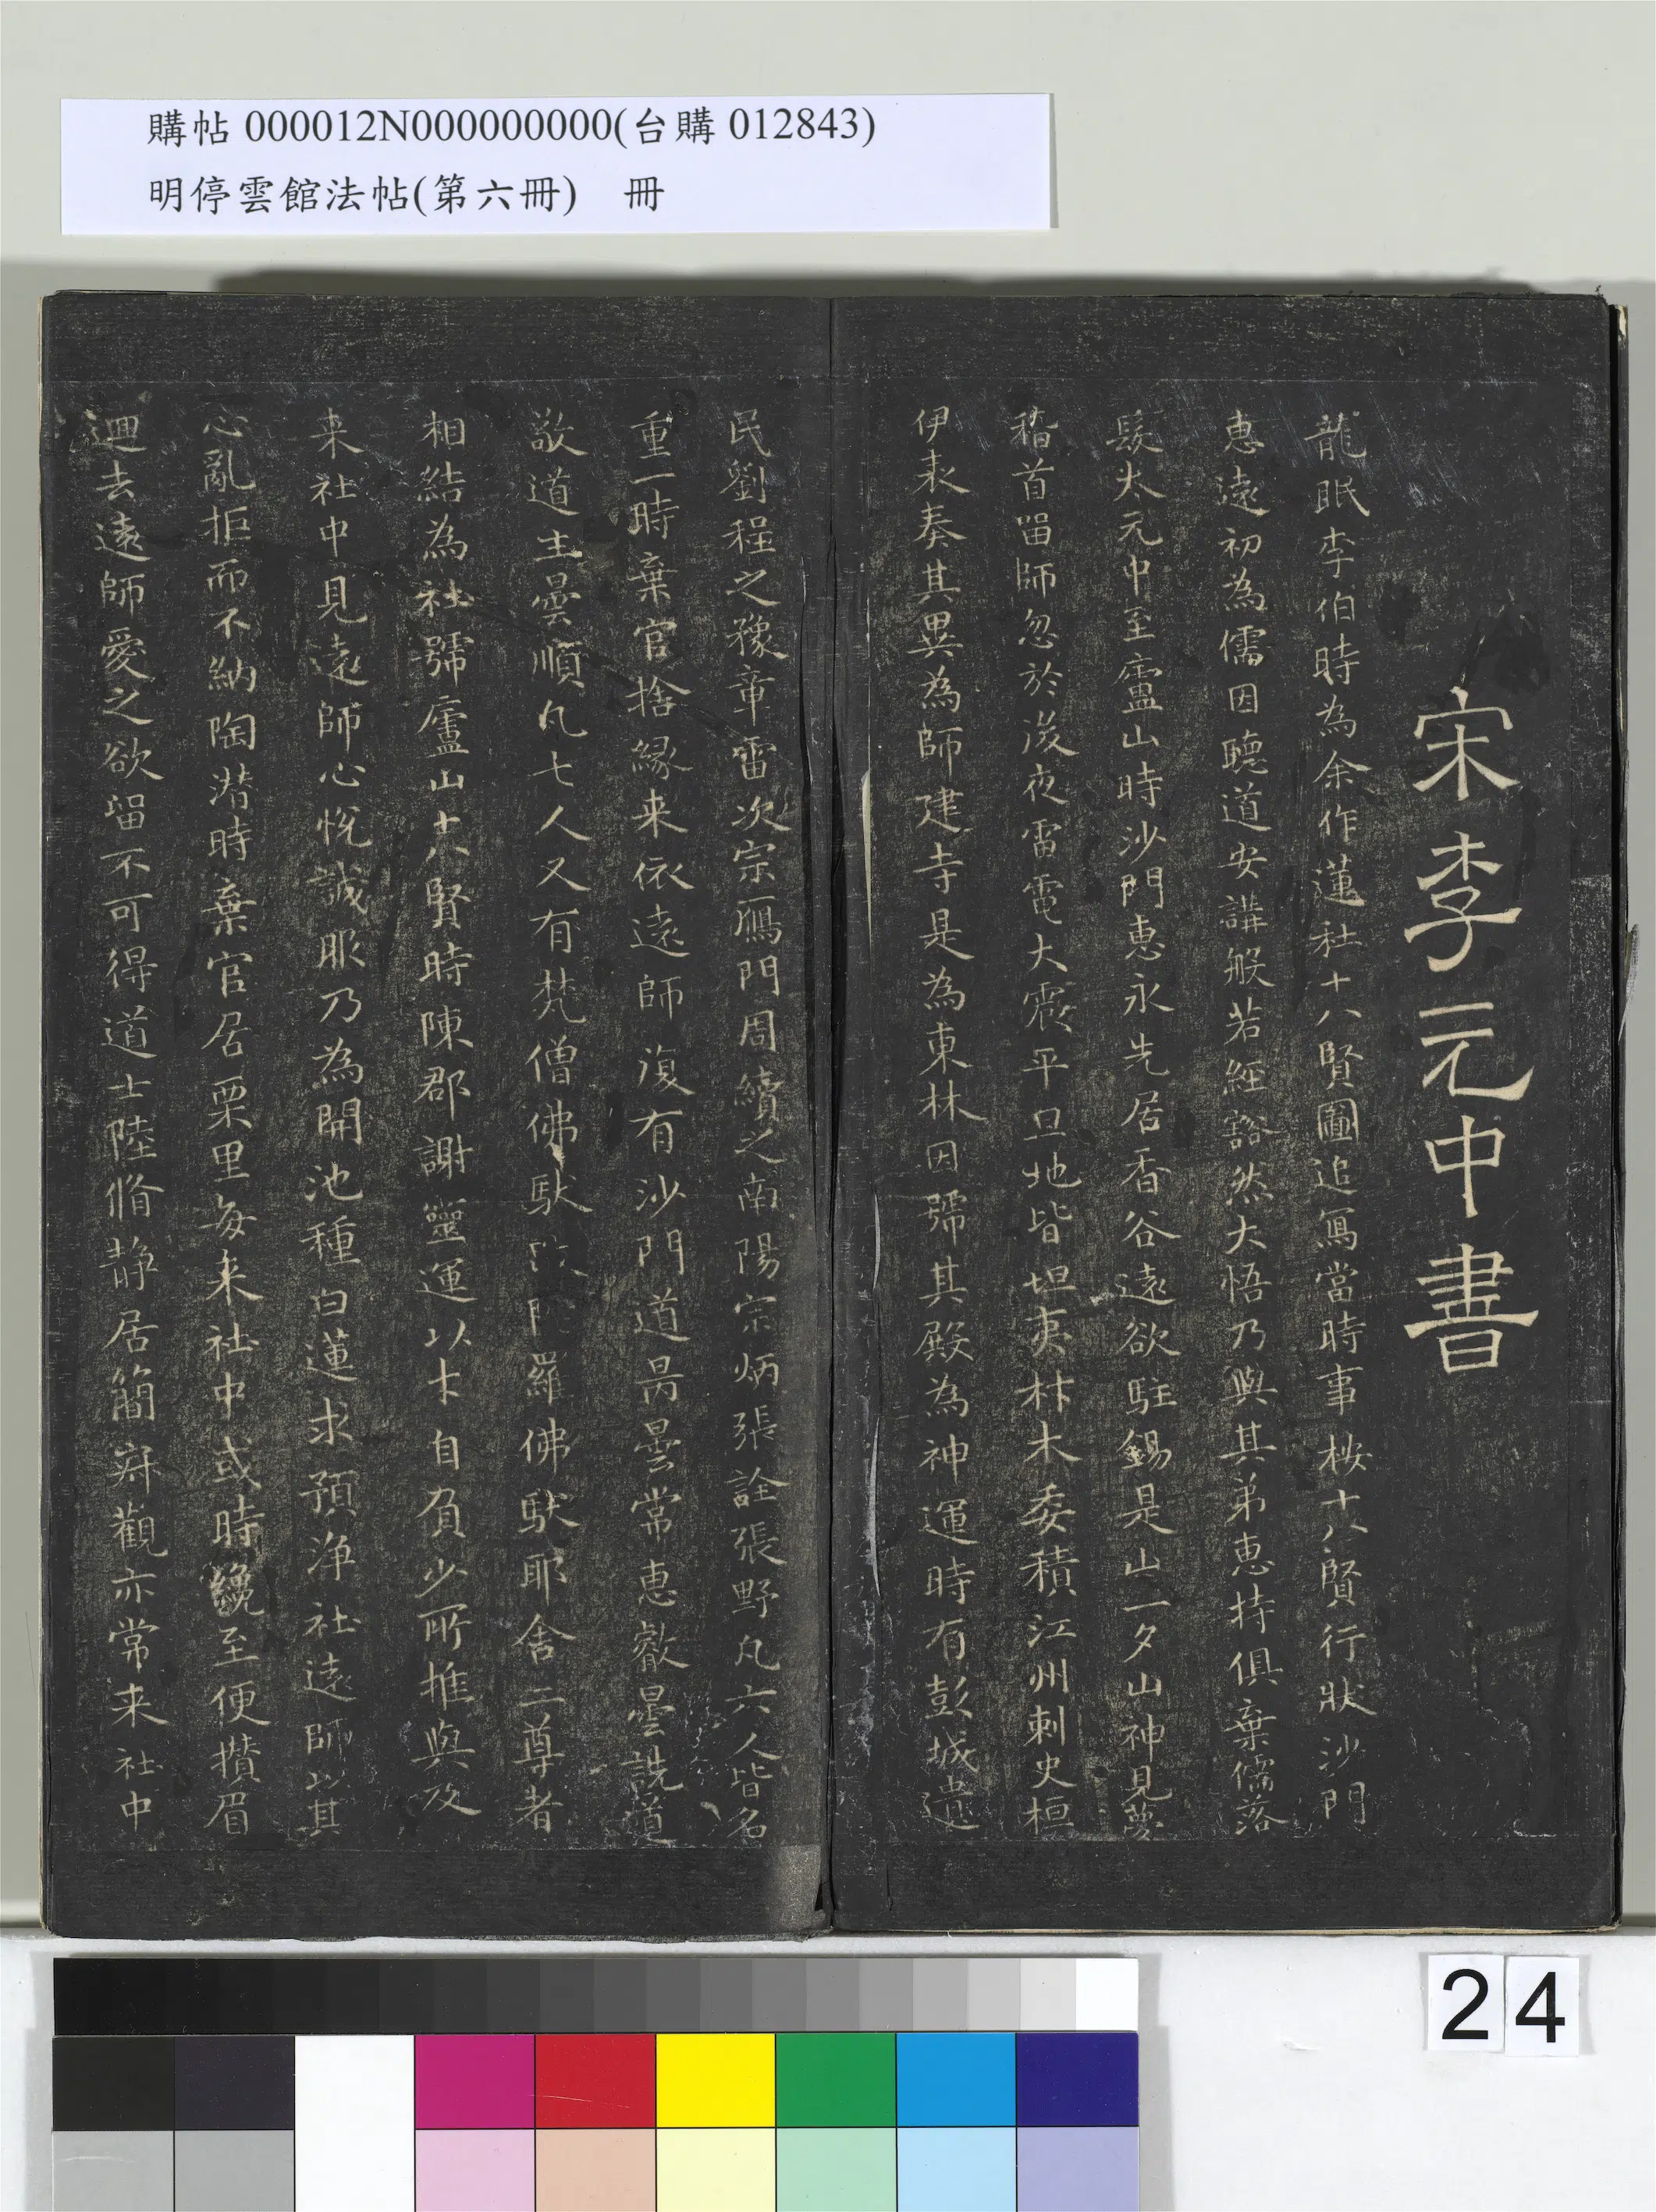 購帖 000012N000000000(台購 012843)
明停雲館法帖(第六冊) 冊
宋李元中書
龍眠李伯時為余作蓮社十八賢圖追寫當時事桉十八賢行狀沙門
惠遠初為儒因聽道安講般若經豁然大悟乃與其弟惠持俱棄儒落
髮太元中至廬山時沙門惠永先居香谷遠欲駐錫是山一夕山神見夢
稽首留師忽於後夜雷電大震平旦地皆坦夷材木委積江州刺史桓
伊表奏其異為師建寺是為東林因號其殿為神運時有彭城遺
民劉程之豫章雷次宗鴈門周續之南陽宗炳張詮張野凡六人皆名
重一時棄官捨緣来依遠師復有沙門道昺曇常惠叡曇詵道
敬道生曇順凡七人又有梵僧佛馱羅佛馱耶舍二尊者
相結為社號廬山十八賢時陳郡謝靈運以才自負少所推與及
来社中見遠師心悅誠服乃為開池種白蓮求預净社遠師以其
心亂拒而不納陶潛時棄官居栗里每来社中或時纔至便攢眉
迴去遠師愛之欲留不可得道士陸脩靜居簡寂觀亦常来社中
24